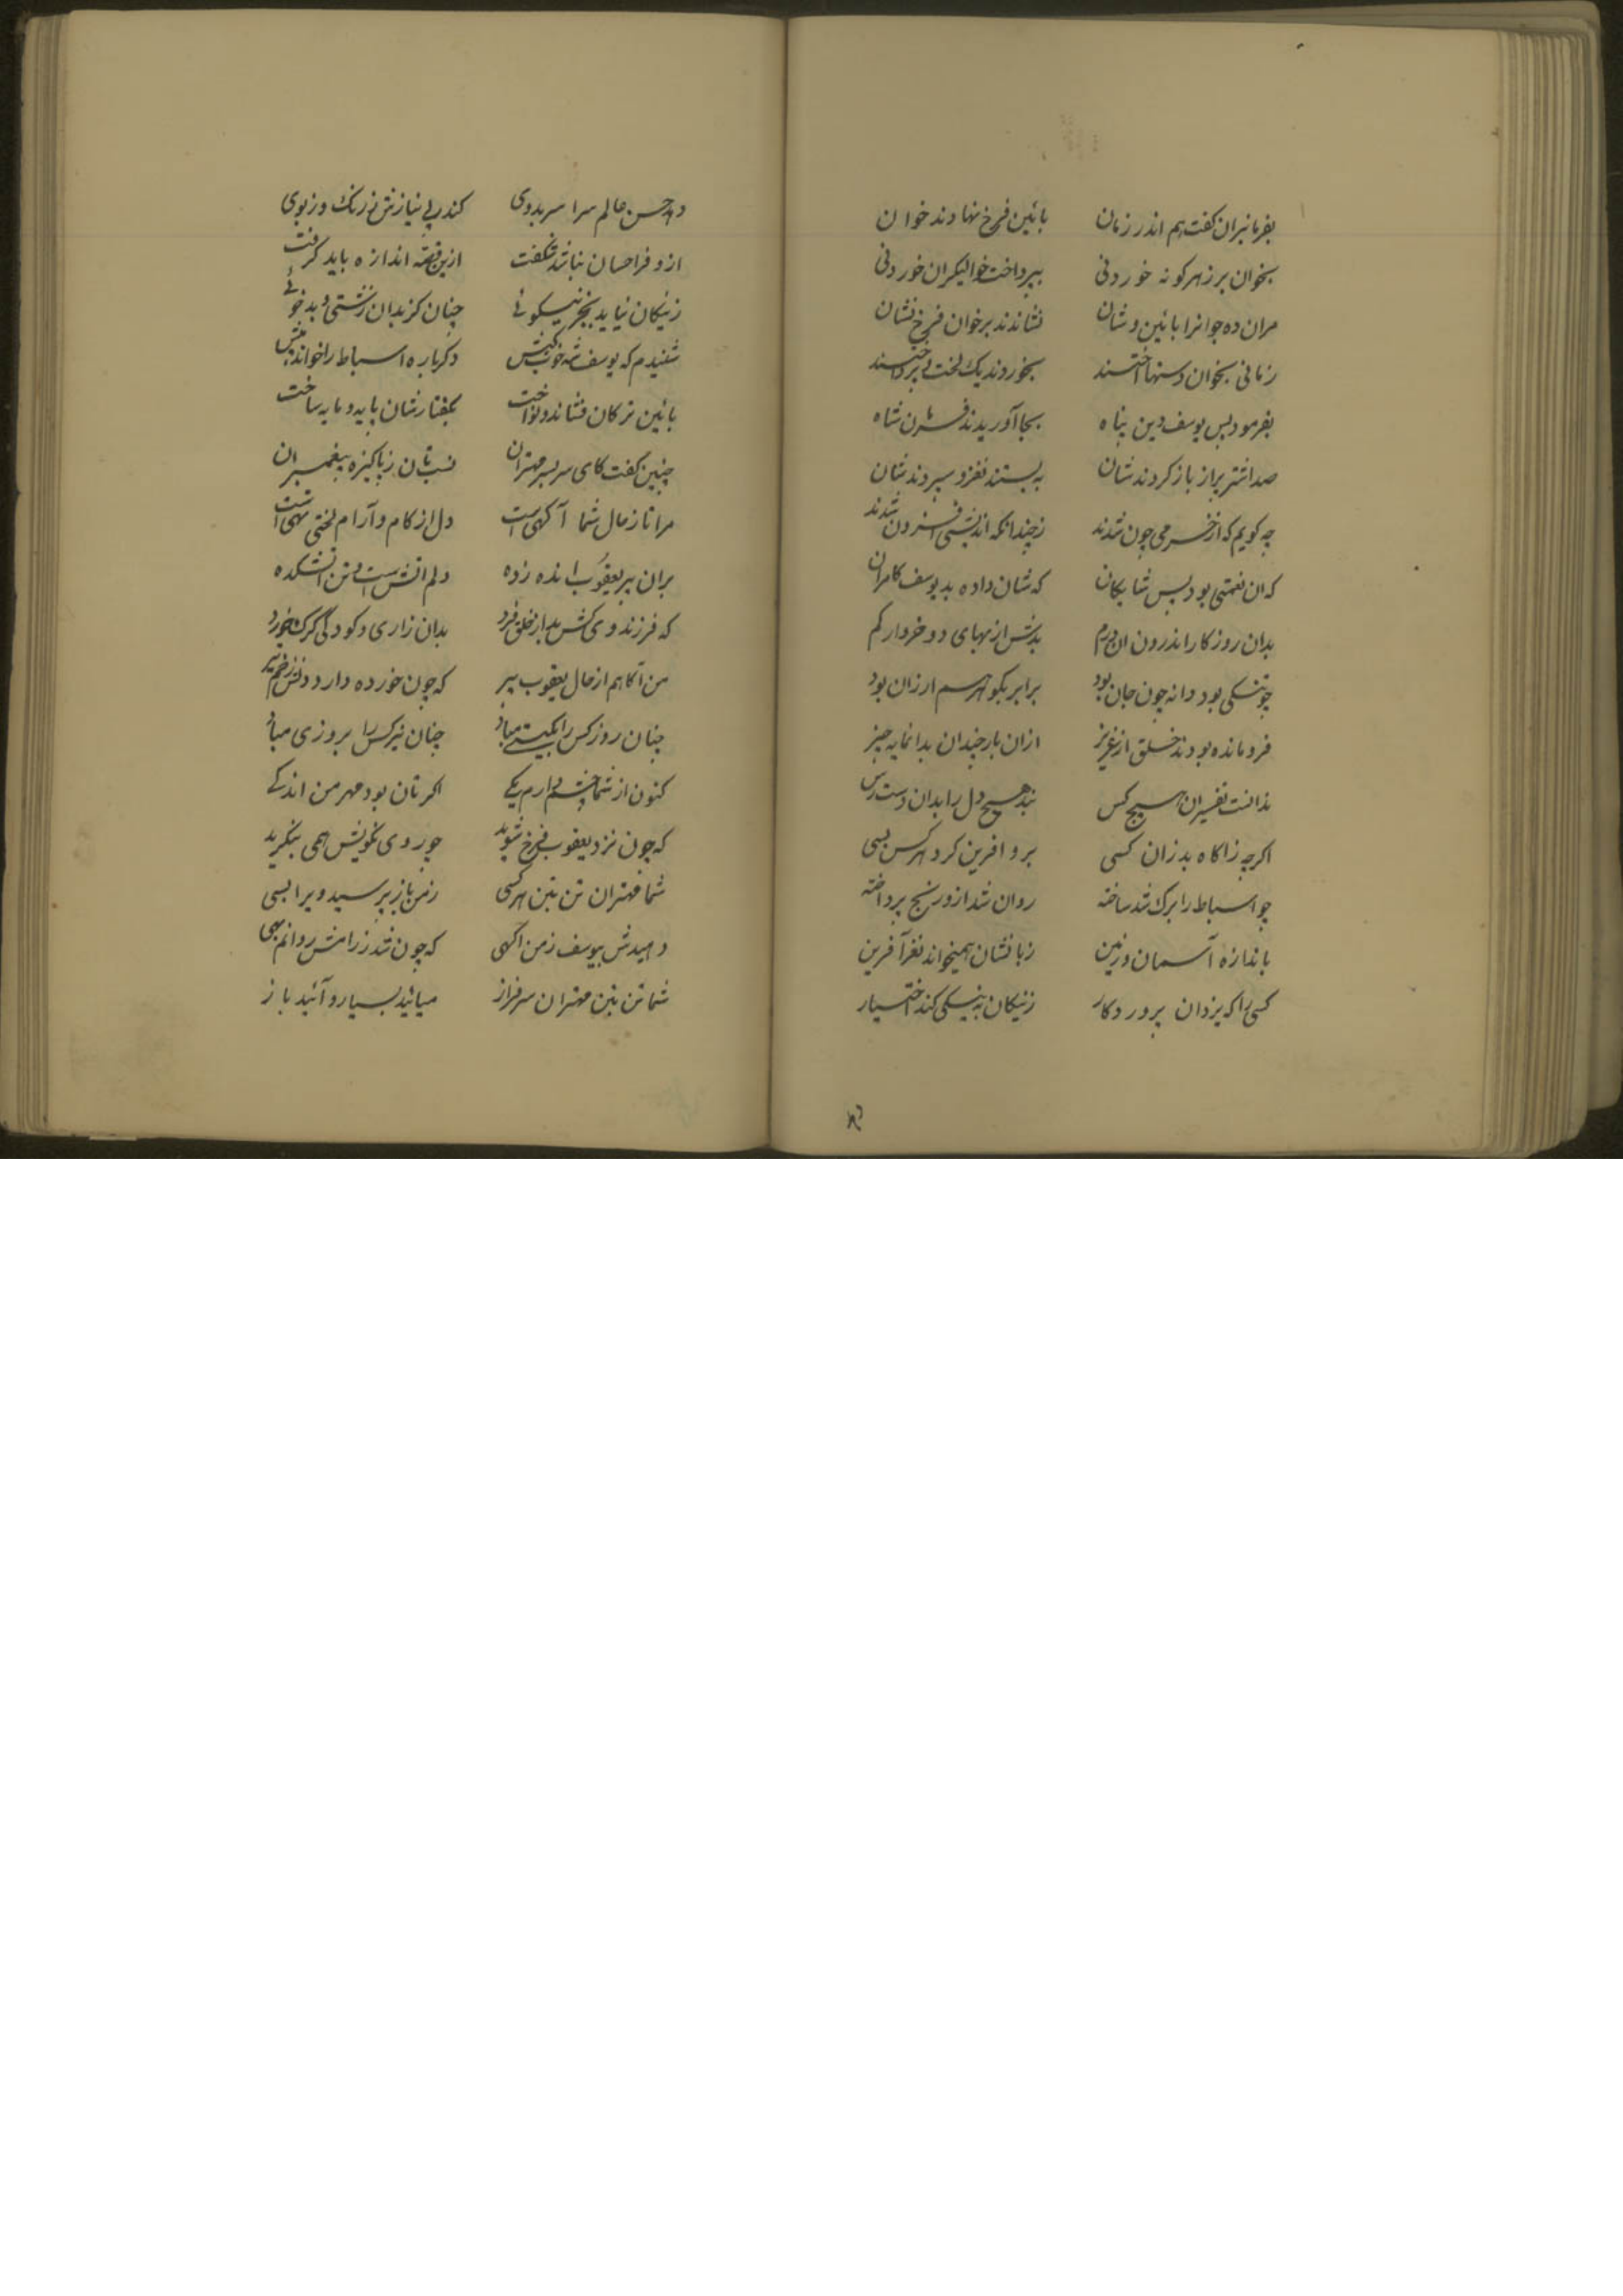 بفرمانبران گفت هم اندر زمان بائین فرخ نهادند خوان
بخوان بر ز هر کونه خوردنی بپرداخت خوالیکران خوردنی
مران ده جوانرا بائین و شان نشاندند بر خوان فرخ نشان
زمانی بخوان دستها آختند بخوردند یک لخت و پرداختند
بفرمود پس یوسف دین پناه بجا آوریدند فرمان شاه
صد اشتر بر از باز کردندشان به بستند نغز و سپردندشان
چه کویم که از خرمی چون شدند ز چندانکه اندیشی افزون شدند
که ان نعمتی بود بس شایکان که شان داده بد یوسف کامران
بدان روزکار اندرون ان درم بدش از بهای دو خروار کم
جو تنکی بود دانه چون جان بود برابر بکوهر هم ارزان بود
فرومانده بودند خلق از عزیز ازان بار چندان بدانمایه چیز
ندانست تفسیر ان هیچ کس نبد هیچ دل را بدان دست رس
اکرچه ز اکاه بد زان کسی برو افرین کرد هر کس بسی
چو اسباط را برک شد ساخته روان شد ازو رنج پرداخته
باندازه آسمان و زمین زبانشان همیخواند نغز آفرین
کسی را که یزدان پروردکار ز نیکان به نیکی کند اختیار
دهد حسن عالم سراسر بدوی کند بی نیازش ز رنک و ز بوی
ازو فر احسان نباشد شکفت ازین قصه اندازه باید کرفت
ز نیکان نیاید بجز نیکوئی چنان کز بدان زشتی و بدخوئی
شنیدم که یوسف شه خوب کیش دکرباره اسباط را خواند پیش
بائین ترکان نشاند و نواخت بکفتارشان پایه و مایه ساخت
چنین کفت کای سربسر مهتران نسب تان ز پاکیزه پیغمبران
مرا تا ز حال شما آکهی است دل از کام و آرام لختی تهی است
بران پیر یعقوب انده زده دلم اتش است و تن اتشکده
که فرزند وی کش بد از خلق فرد بدان زاری و کودکی کرک خورد
من آکاهم از حال یعقوب پیر که چون خورده دارد دلش زخم تیر
چنان روز کس را بکیتی مباد چنان نیز کس را بروزی مباد
کنون از شما چشم دارم یکی اکرتان بود مهر من اندکی
که چون نزد یعقوب فرخ شوید چو روی نکویش همی بنکرید
شما مهتران تن بتن هر کسی ز من باز پرسید ویرا بسی
دهیدش بیوسف ز من اکهی که چون شد ز رامش روانم تهی
شما تن بتن مهتران سرفراز میائید بسیار و آئید باز